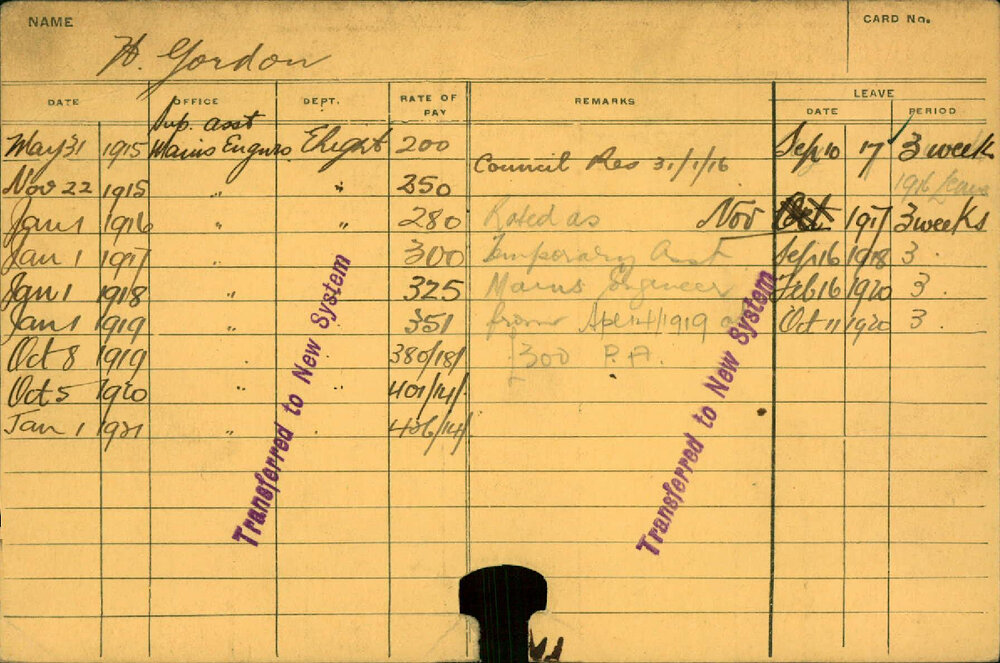 NAME
CARD No.
H. Gordon
DATE OFFICE DEPT. RATE OF PAY REMARKS LEAVE
DATE PERIOD
Sup. asst
May 31 1915 Mains Engnrs Elight 200 Sep 10 17 3 week
Council Res 31/1/16
Nov 22 1915 " " 250 1916 Leave
Jan 1 1916 " " 280 Rated as Nov Oct 1917 3 weeks
Jan 1 1917 " 300 Temporary Asst Sep 16 1918 3 "
Jan 1 1918 " 325 Mains Engineer Feb 16 1920 3 "
Jan 1 1919 " 351 from Apl 14/1919 Oct 11 1920 3 "
Oct 8 1919 " 380/18/ 300 P.A.
Oct 5 1920 " 401/14/
Jan 1 1921 " 426/14/
Transferred to New System
Transferred to New System